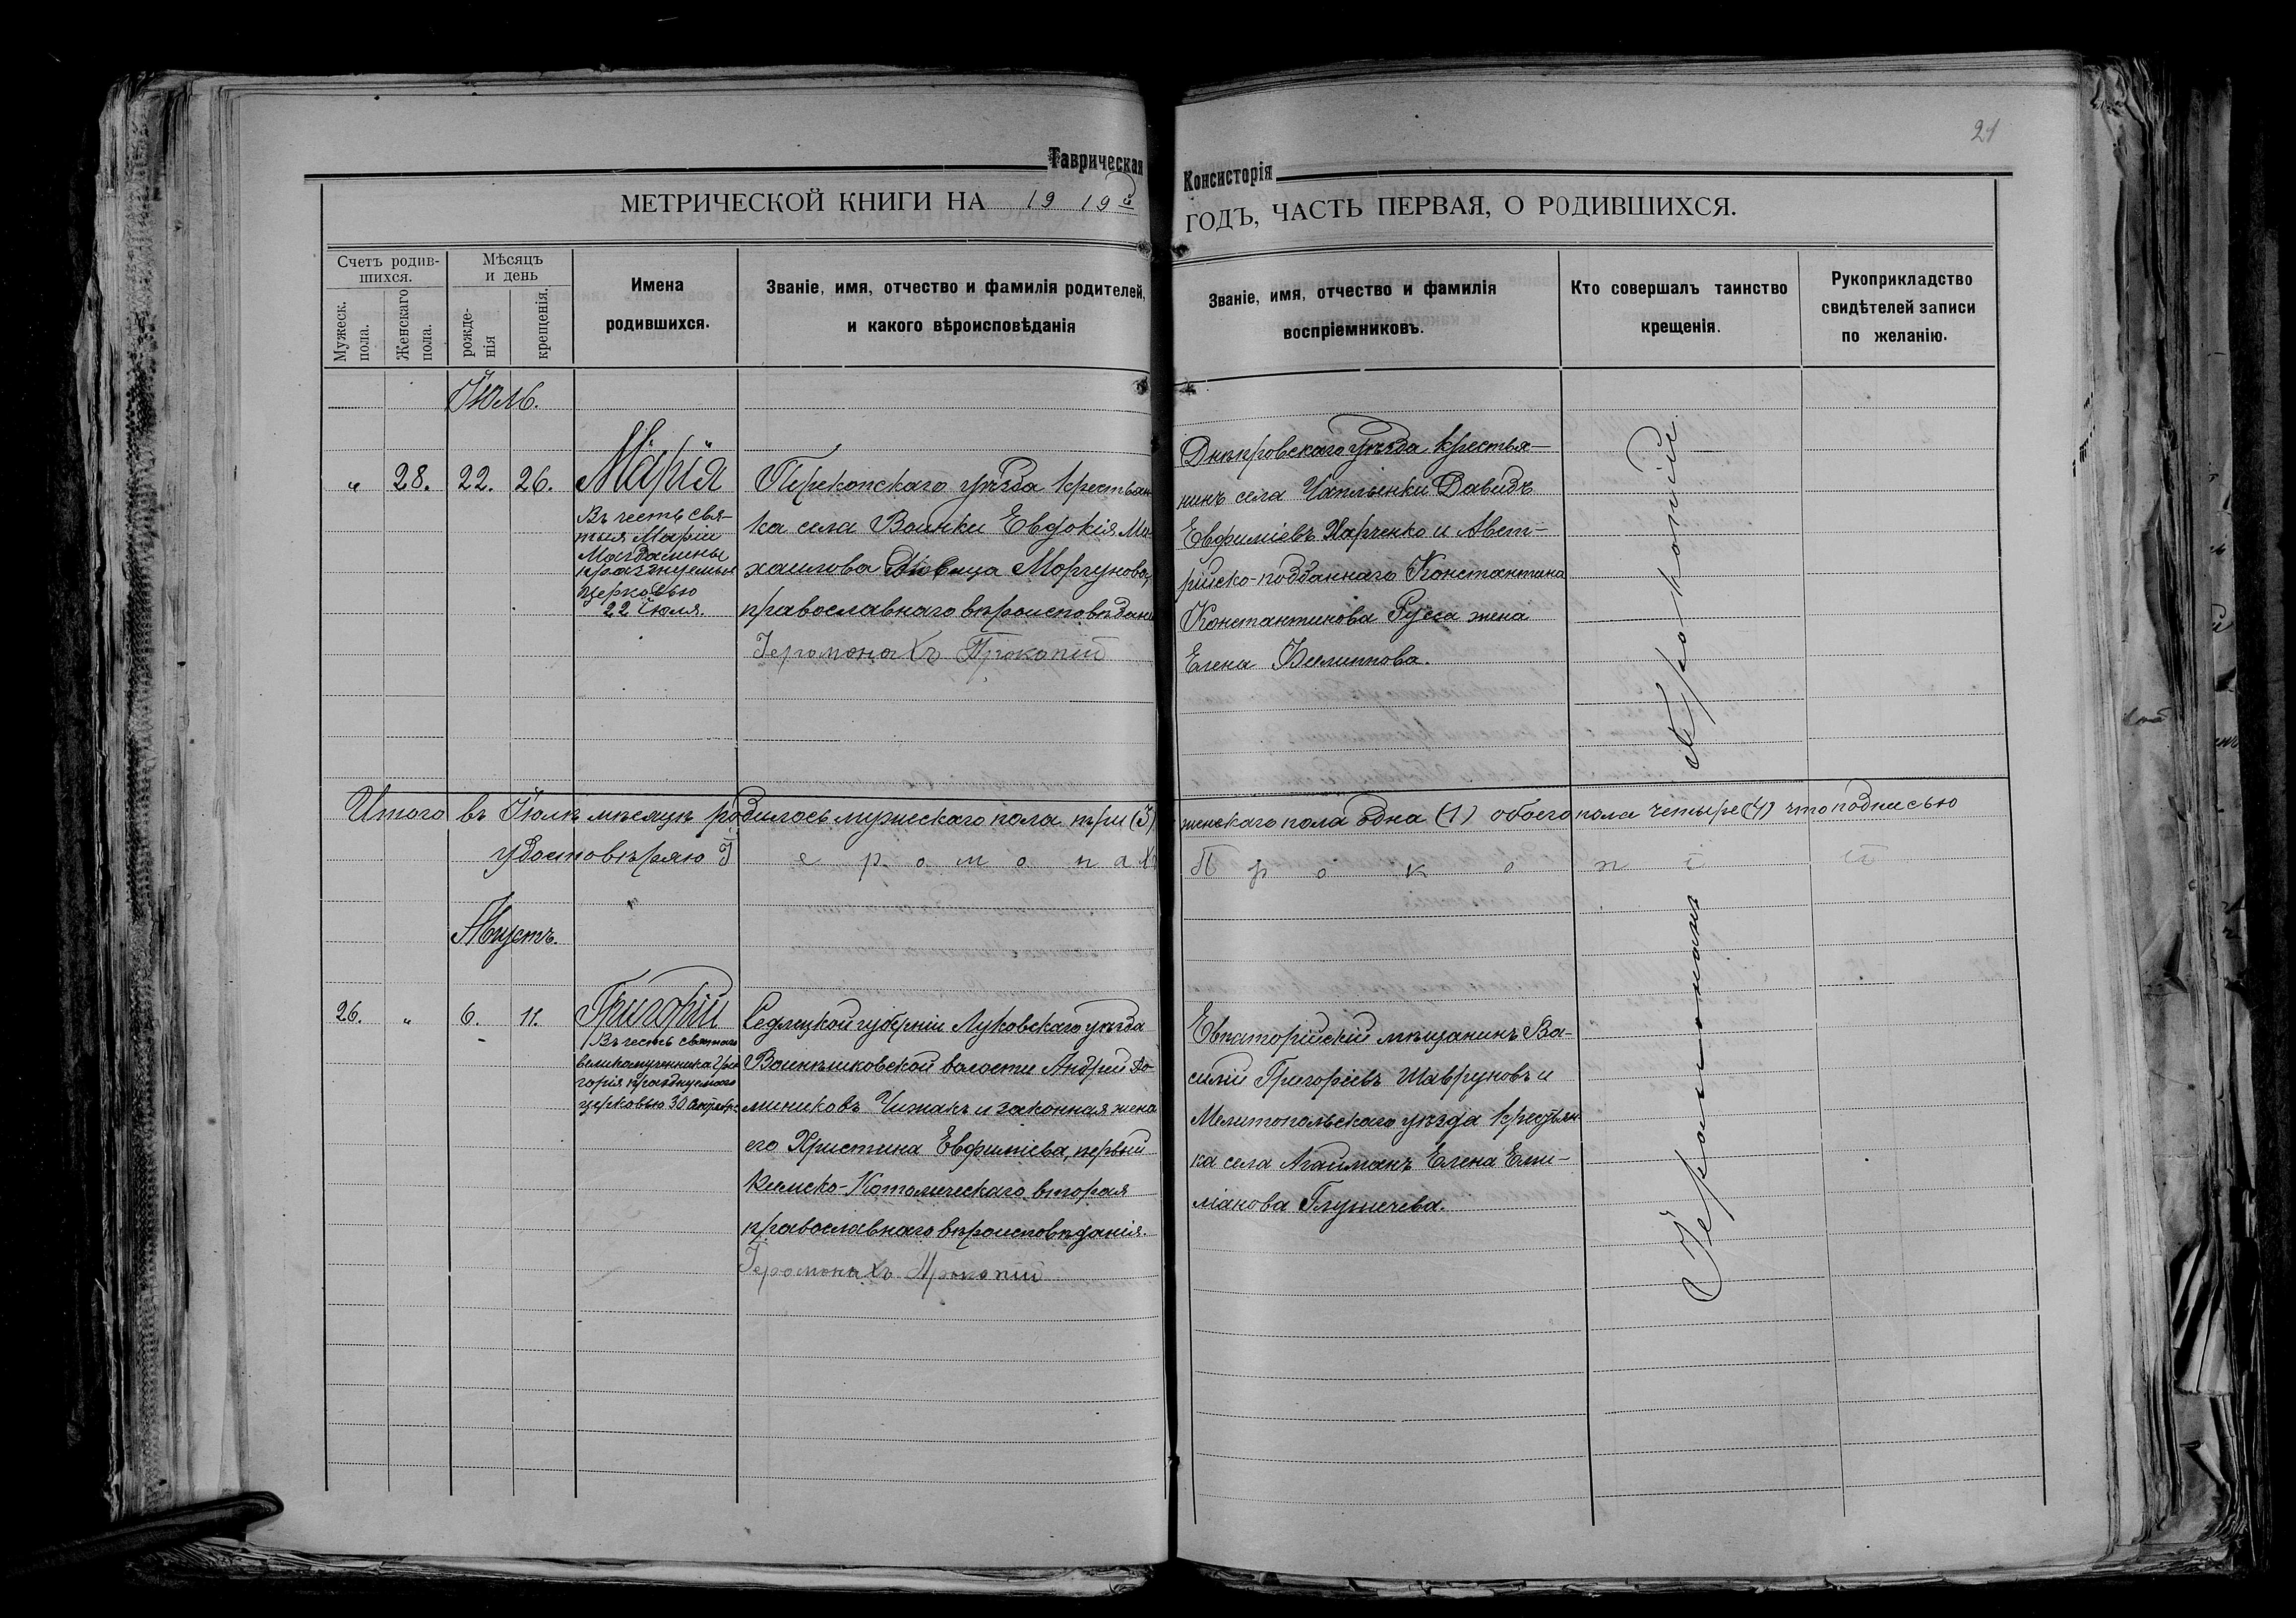 Таврическая
МЕТРИЧЕСКОЙ КНИГИ НА 1919й
Счетъ родив-
шихся.
Мужеск. пола.
Женскаго пола.
Мѣсяцъ
и день
рожде-
нія
крещенія.
Имена
родившихся.
Званіе, имя, отчество и фамилія родителей,
и какого вѣроисповѣданія
Іюль.
" 28. 22. 26. Марія
Въ честь свя-
тыя Маріи
Магдалины
празднуемыя
церковью
22 Іюля.
Перекопскаго уѣзда крестьян
ка села Воинки Евдокія Ми-
хаилова девица Моргунова,
православнаго вѣроисповѣдан
Іеромонахъ Прокопій
Итого въ Іюлѣ мѣсяцѣ родилось мужескаго пола три (3)
удостовѣряю Іеромонахъ
Августъ.
26. " 6. 11. Григорій
Въ честь святаго
великомученника Гри
горія празднуемаго
церковью 30 Сентября
Седлецкой губерніи Луковскаго уѣзда
волости Андрей До-
миниковъ Чижакъ и законная жена
его Христина Евфиміева, первый
Римско-Католическаго вторая
православнаго вѣроисповѣданія.
Іеромонахъ Прокопій
21
Консисторія
ГОДЪ, ЧАСТЬ ПЕРВАЯ, О РОДИВШИХСЯ.
Званіе, имя, отчество и фамилія
воспріемниковъ.
Кто совершалъ таинство
крещенія.
Рукоприкладство
свидѣтелей записи
по желанію.
Днѣпровскаго уѣзда крестья-
нинъ села Чаплынки Давидъ
Евфиміевъ Харченко и Авст-
рійско-подданнаго Константина
Константинова Русса жена
Елена Филиппова.
женскаго пола одна (1) обоего пола четыре (4) что подписью
Прокопій
Евпаторійскій мѣщанинъ Ва-
силій Григоріевъ Шавруновъ и
Мелитопольскаго уѣзда крестьян
ка села Агайманъ Елена Еми-
ліанова
Іеромонахъ Прокопій